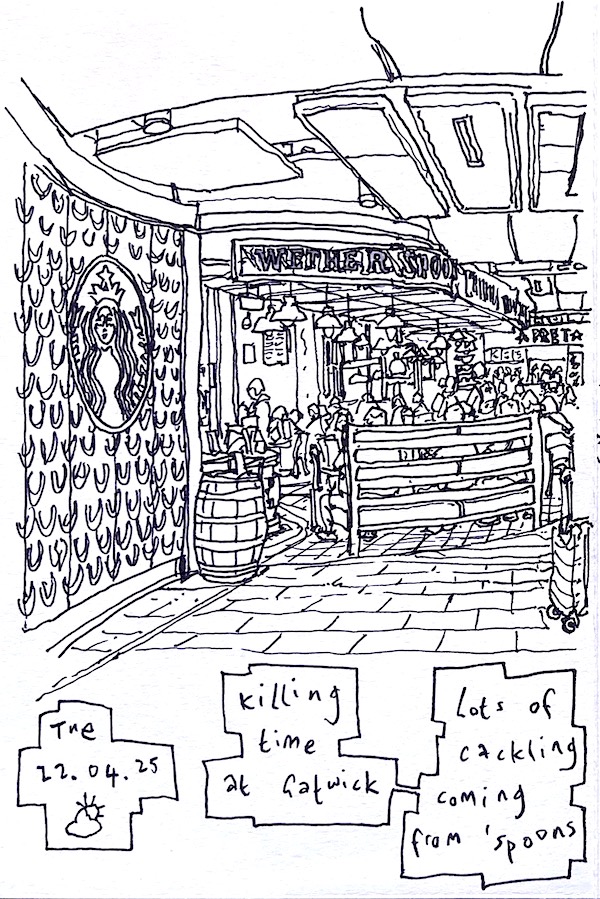 WETHERSPOON
PRET
Tue
22.04.25
killing
time
at Gatwick
Lots of
cackling
coming
from 'spoons